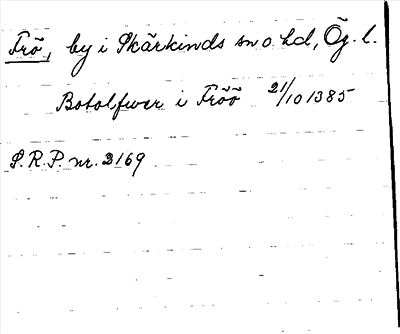 Frö, by i Skärkinds sn o hd, Ög. l.
Botolfwer i Fröö 21/10 1385
S.R.P. nr. 2169